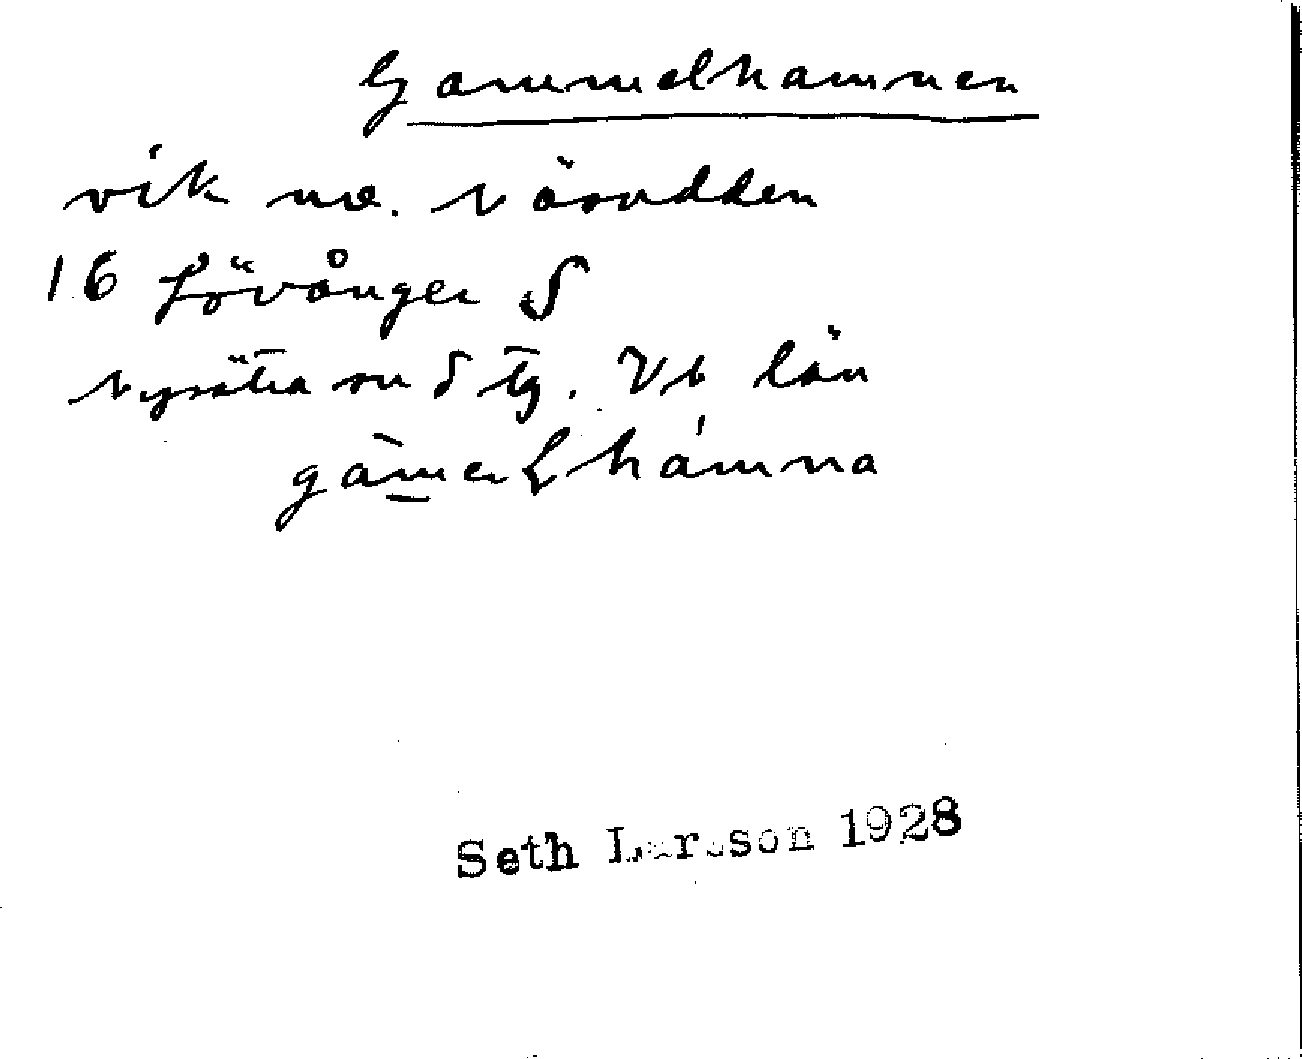 Gammelhamnen
vik nv. Näsudden
16 Lövånger S
Nysätra sn o tg. Vb län
gàmeLhámna
Seth Larsson 1928